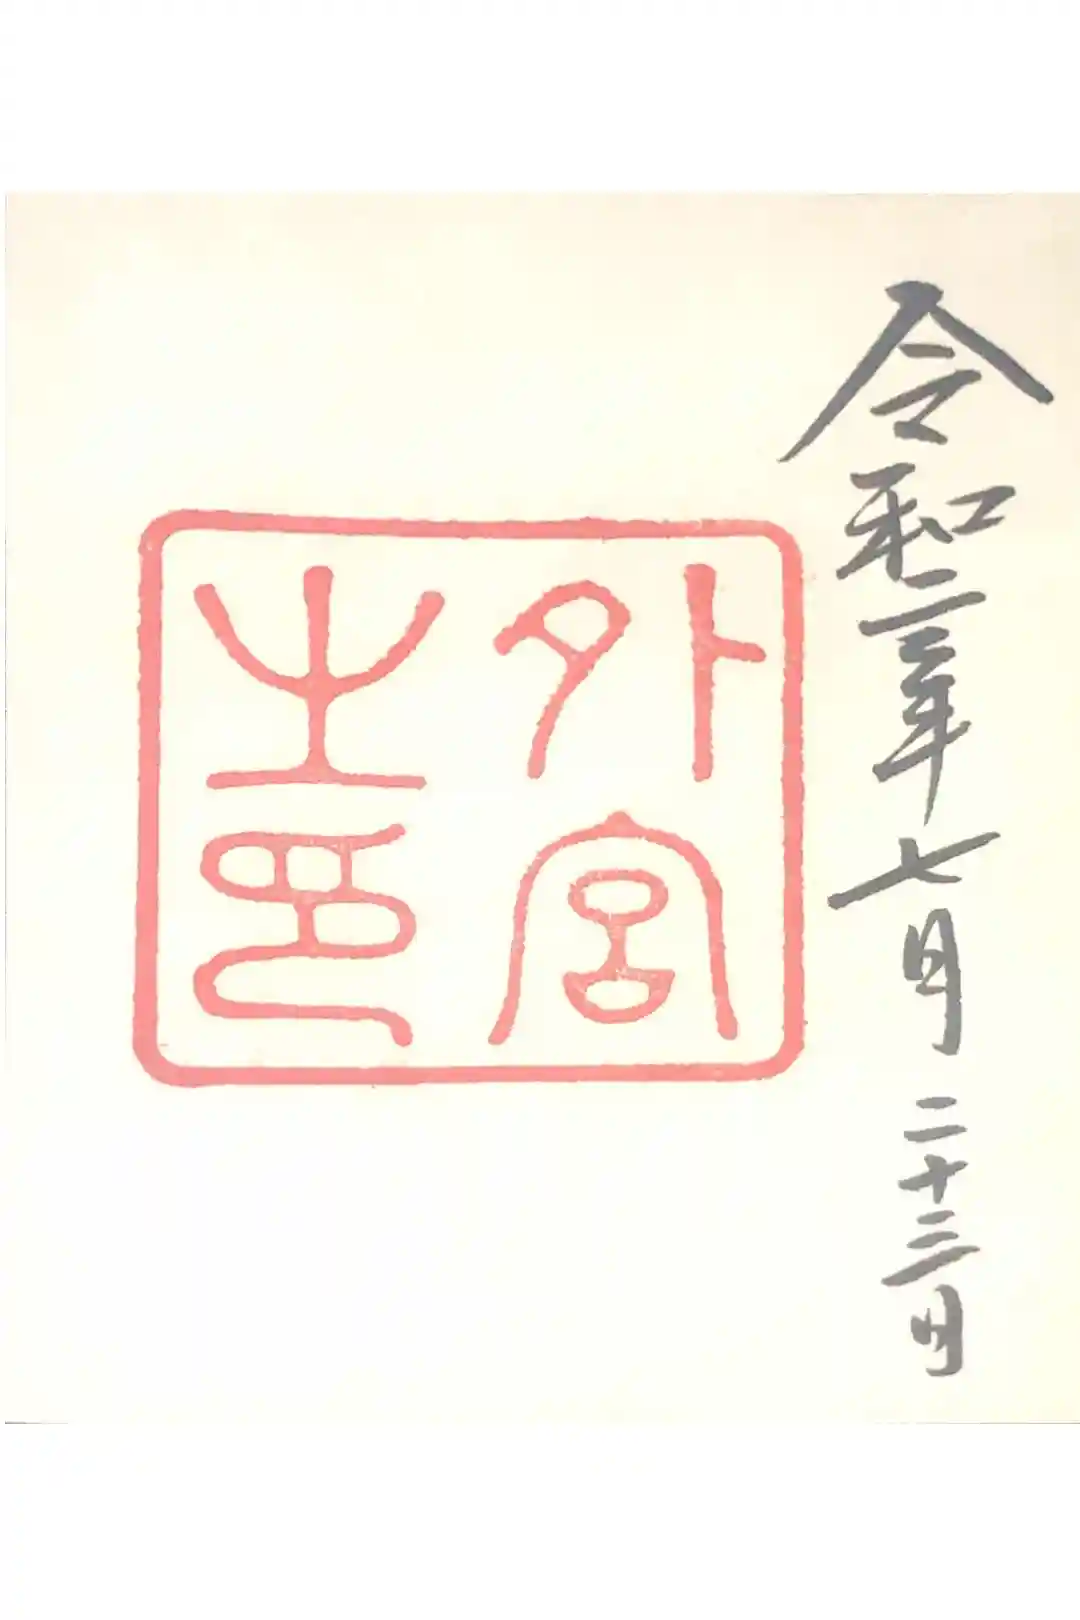 令和三年七月二十三日
外宮
之印